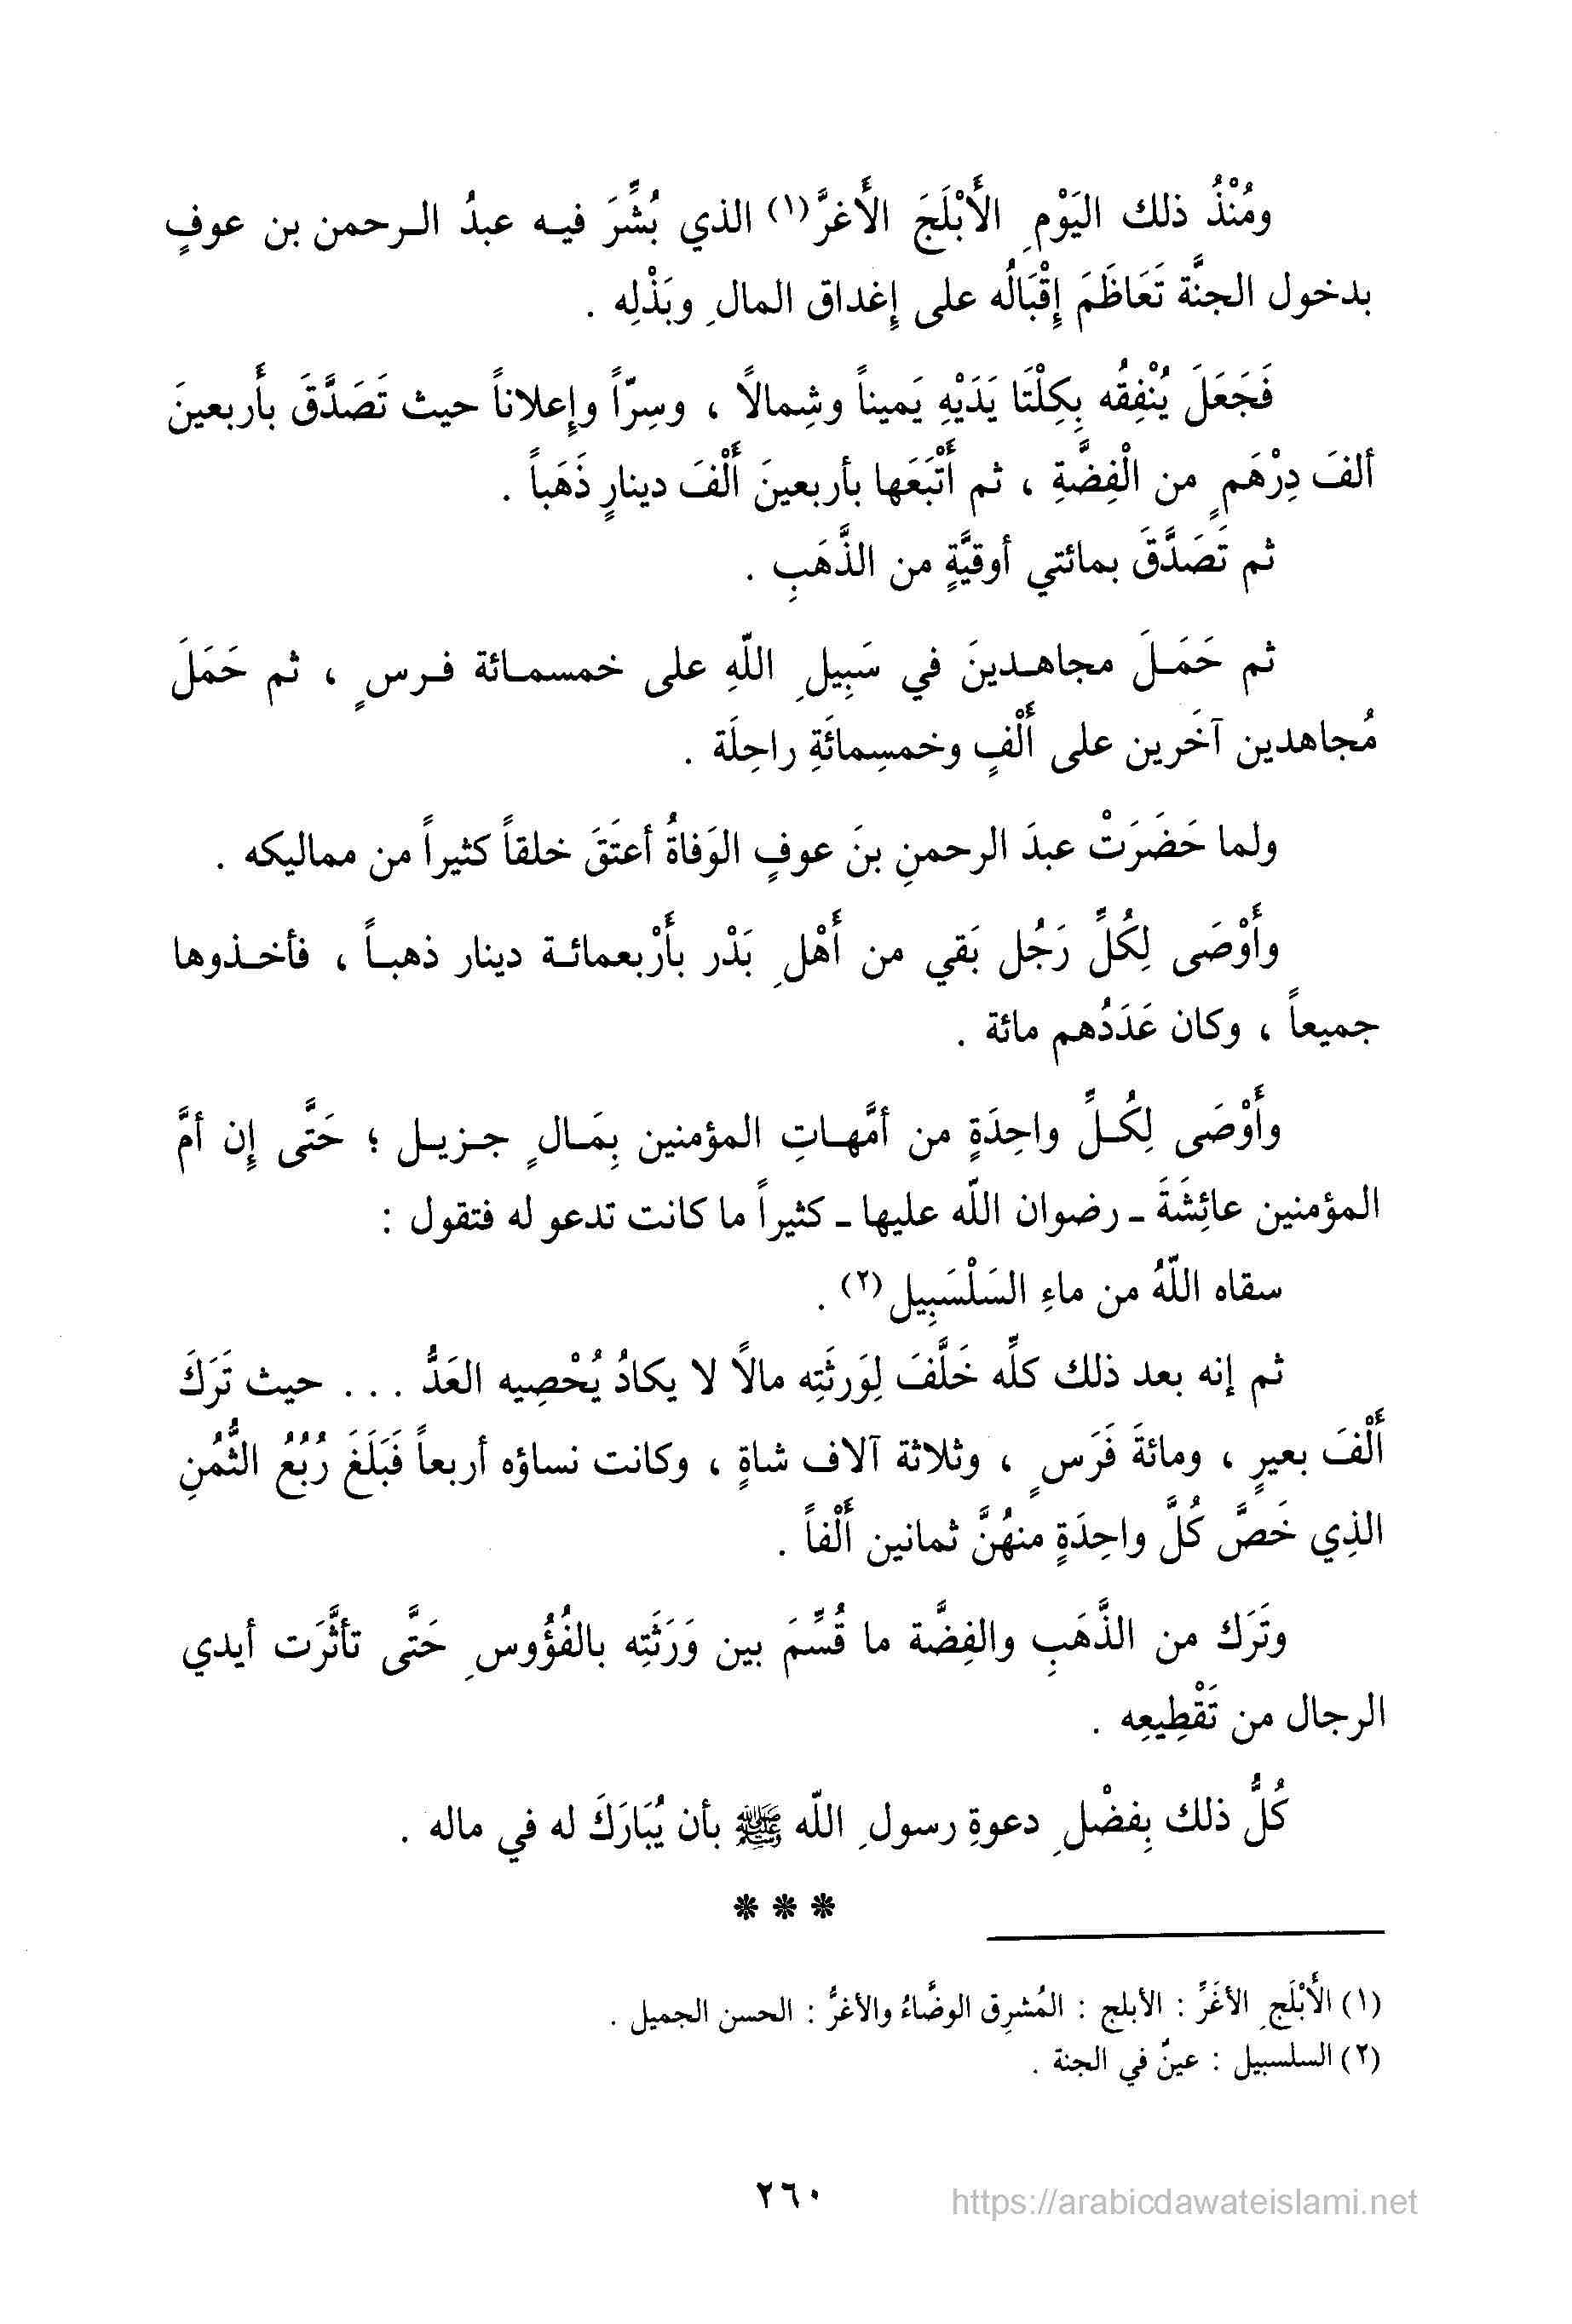 ومُنْذُ ذلك اليَوْمِ الأَبْلَجَ الأَغرَّ(١) الذي بُشِّرَ فيه عبدُ الرحمن بن عوفٍ
بدخول الجنَّة تَعَاظَمَ إِقْبَالُه على إِغداق المالِ وبَذْلِه .
فَجَعَلَ يُنْفِقُه بِكِلْتَا يَدَيْهِ يَميناً وشِمالاً ، وسِرّاً وإِعلاناً حيث تَصَدَّقَ بأَربعينَ
ألفَ دِرْهَمٍ من الْفِضَّةِ ، ثم أَتْبَعَها بأربعينَ أَلْفَ دينارٍ ذَهَباً .
ثم تَصَدَّقَ بمائتي أوقيَّةٍ من الذَّهَبِ .
ثم حَمَلَ مجاهدينَ في سَبِيلِ اللّهِ على خمسمائة فرسٍ ، ثم حَمَلَ
مُجاهدين آخَرين على أَلْفٍ وخمسِمائَةِ راحِلَة .
ولما حَضَرَتْ عبدَ الرحمنِ بنَ عوفٍ الوَفاةُ أعتَقَ خلقاً كثيراً من مماليكه .
وأَوْصَى لِكُلِّ رَجُل بَقي من أَهْلِ بَدْر بأَرْبعمائة دينار ذهباً ، فأخذوها
جميعاً ، وكان عَدَدُهم مائة .
وأَوْصَى لِكُلِّ واحِدَةٍ من أمَّهاتِ المؤمنين بِمَالٍ جزيل ؛ حَتَّى إِن أمَّ
المؤمنين عائِشَةَ ـ رضوان اللّه عليها ـ كثيراً ما كانت تدعو له فتقول :
سقاه اللّهُ من ماءِ السَلْسَبِيل(٢) .
ثم إنه بعد ذلك كلِّه خَلَّفَ لِوَرثَتِه مالاً لا يكادُ يُحْصِيه العَدُّ . . . حيث تَرَكَ
أَلْفَ بعيرٍ ، ومائةَ فَرَسٍ ، وثلاثة آلاف شاةٍ ، وكانت نساؤه أربعاً فَبَلَغَ رُبُعُ الثُّمُنِ
الذِي خَصَّ كُلَّ واحِدَةٍ منهُنَّ ثمانين أَلْفاً .
وتَرَك من الذَّهَبِ والفِضَّة ما قُسِّمَ بين وَرَثَتِه بالفُؤُوسِ حَتَّى تأثَّرَت أيدي
الرجال من تَقْطِيعِه .
كُلُّ ذلك بِفضْلِ دعوةِ رسولِ اللّه ﷺ بأن يُبَارَكَ له في ماله .
* * *
(١) الأَبْلَجِ الأغَرِّ : الأبلج : المُشرِق الوضَّاءُ والأغرُّ : الحسن الجميل .
(٢) السلسبيل : عينٌ في الجنة .
٢٦٠
https://arabicdawateislami.net